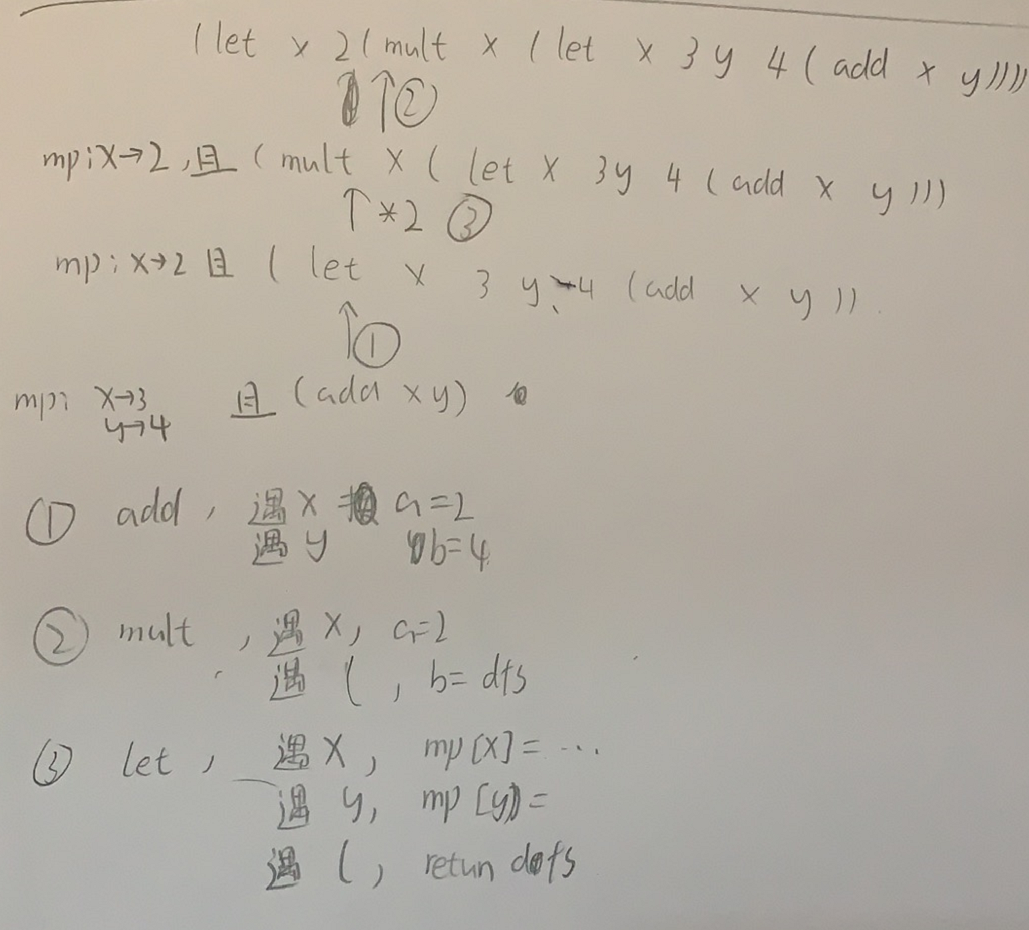 (let x 2(mult x (let x 3 y 4 (add x y))))
↑②
mp:x→2,且 (mult x (let x 3y 4 (add x y)))
↑*2 ③
mp:x→2 且 (let x 3 y 4 (add x y)).
↑①
mp: x→3 且 (add x y)
y→4
① add, 遇 x a=2
遇 y b=4
② mult, 遇 x, a=2
遇 (, b= dfs
③ let, 遇 x, mp[x]= ...
遇 y, mp[y]=
遇 (, retun dfs